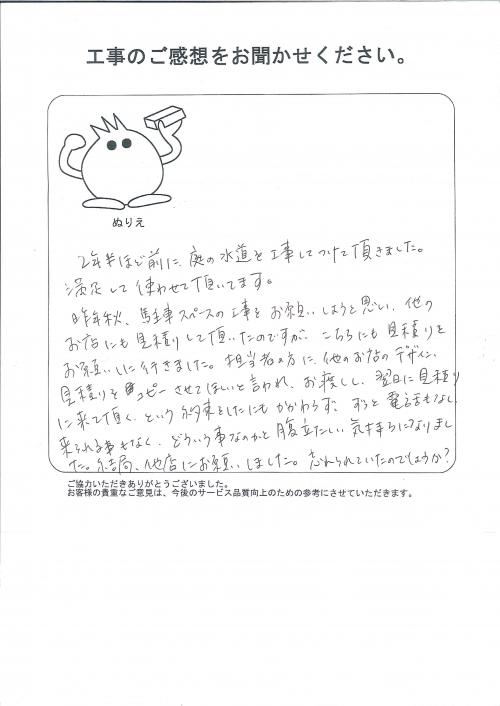 工事のご感想をお聞かせください。
ぬりえ
2年半ほど前に、庭の水道を工事してつけて頂きました。
満足して使わせて頂いてます。
昨年秋、駐車スペースの工事をお願いしようと思い、他の
お店にも見積りして頂いたのですが、こちらにも見積りを
お願いしに行きました。担当者の方に、他のお店のデザイン、
見積りをコピーさせてほしいと言われ、お渡しし、翌日に見積り
に来て頂く、という約束をしたにもかかわらず、ずっと電話もなく
来られる事もなく、どういう事なのかと腹立たしい気持ちになりまし
た。結局、他店にお願いしました。忘れられていたのでしょうか？
ご協力いただきありがとうございました。
お客様の貴重なご意見は、今後のサービス品質向上のための参考にさせていただきます。